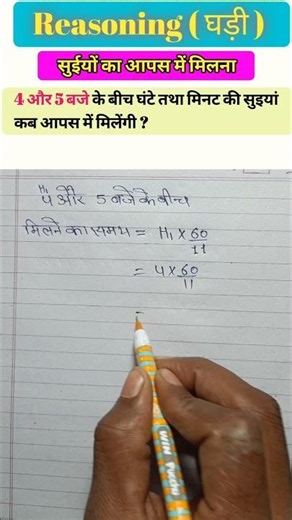 Reasoning ( घड़ी )
सुईयों का आपस में मिलना
4 और 5 बजे के बीच घंटे तथा मिनट की सुइयां
कब आपस में मिलेंगी ?
H₁
4 और 5 बजे के बीच
मिलने का समय = H₁ × 60/11
= 4 × 60/11
=
WIN Pucho